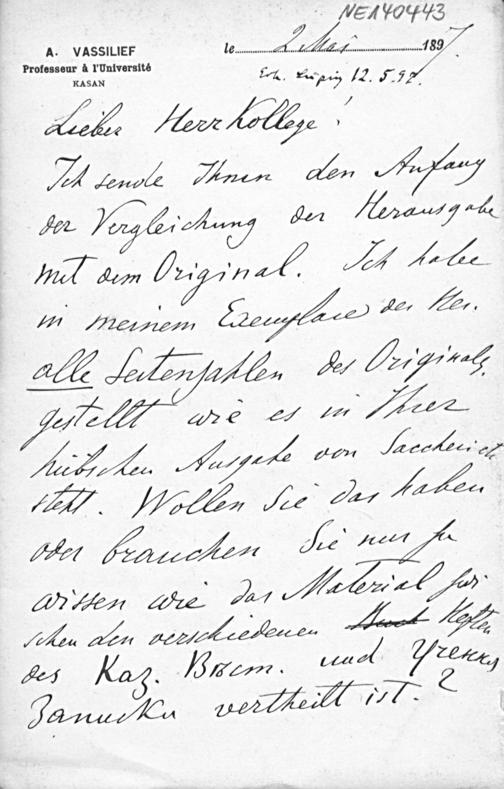 NE140443
A. VASSILIEF
Professeur à l'Université
KASAN
le 2 Mai 1897.
Erh. Leipzig 12.5.97.
Lieber Herr Kollege!
Ich sende Ihnen den Anfang
der Vergleichung der Herausgabe
mit dem Original. Ich habe
in meinem Exemplare der Her.
alle Seitenzahlen des Originals
gestellt wie es in Ihrer
hübschen Ausgabe von Saccheri
steht. Wollen Sie das haben
oder brauchen Sie nur zu
wissen wie das Material zwi
schen den verschiedenen Heften
des Каз. Вѣстн. und Ученыя
Записки vertheilt ist?